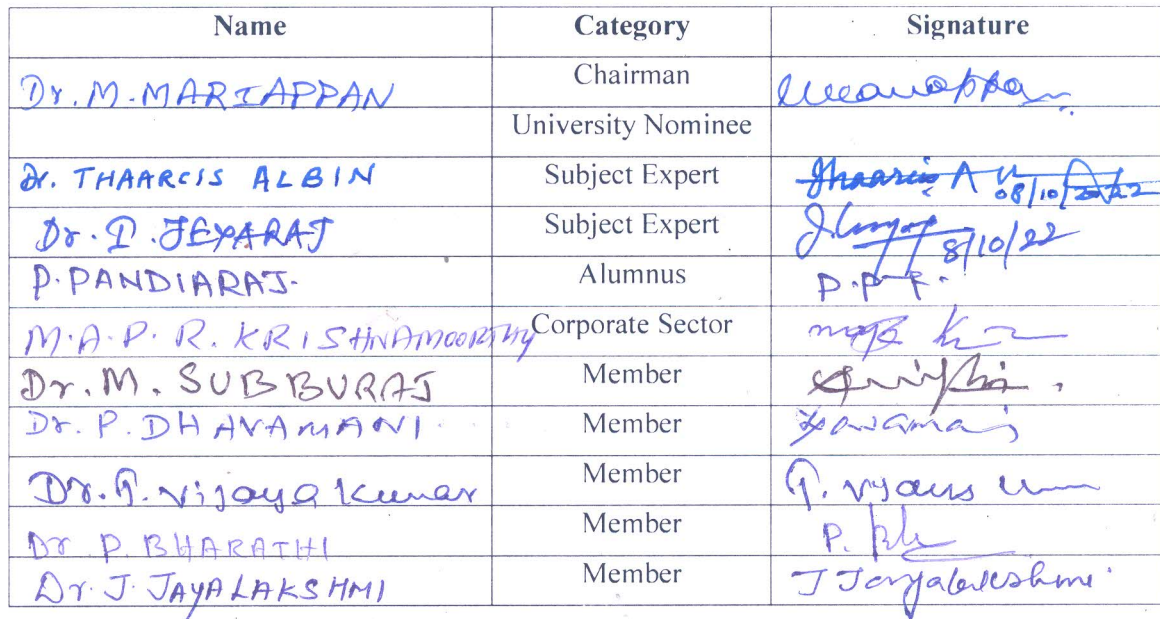 Name Category Signature
Dr. M. MARIAPPAN Chairman
University Nominee
Dr. THAARCIS ALBIN Subject Expert 08/10/2022
Dr. I. JEYARAJ Subject Expert 8/10/22
P. PANDIARAJ. Alumnus P.P-R.
M.A.P.R. KRISHNAMOORTHY Corporate Sector
Dr. M. SUBBURAJ Member
Dr. P. DHAVAMANI. Member
Dr. G. Vijaya Kumar Member
Dr P. BHARATHI Member P.
Dr. J. JAYALAKSHMI Member J Jayalakshmi